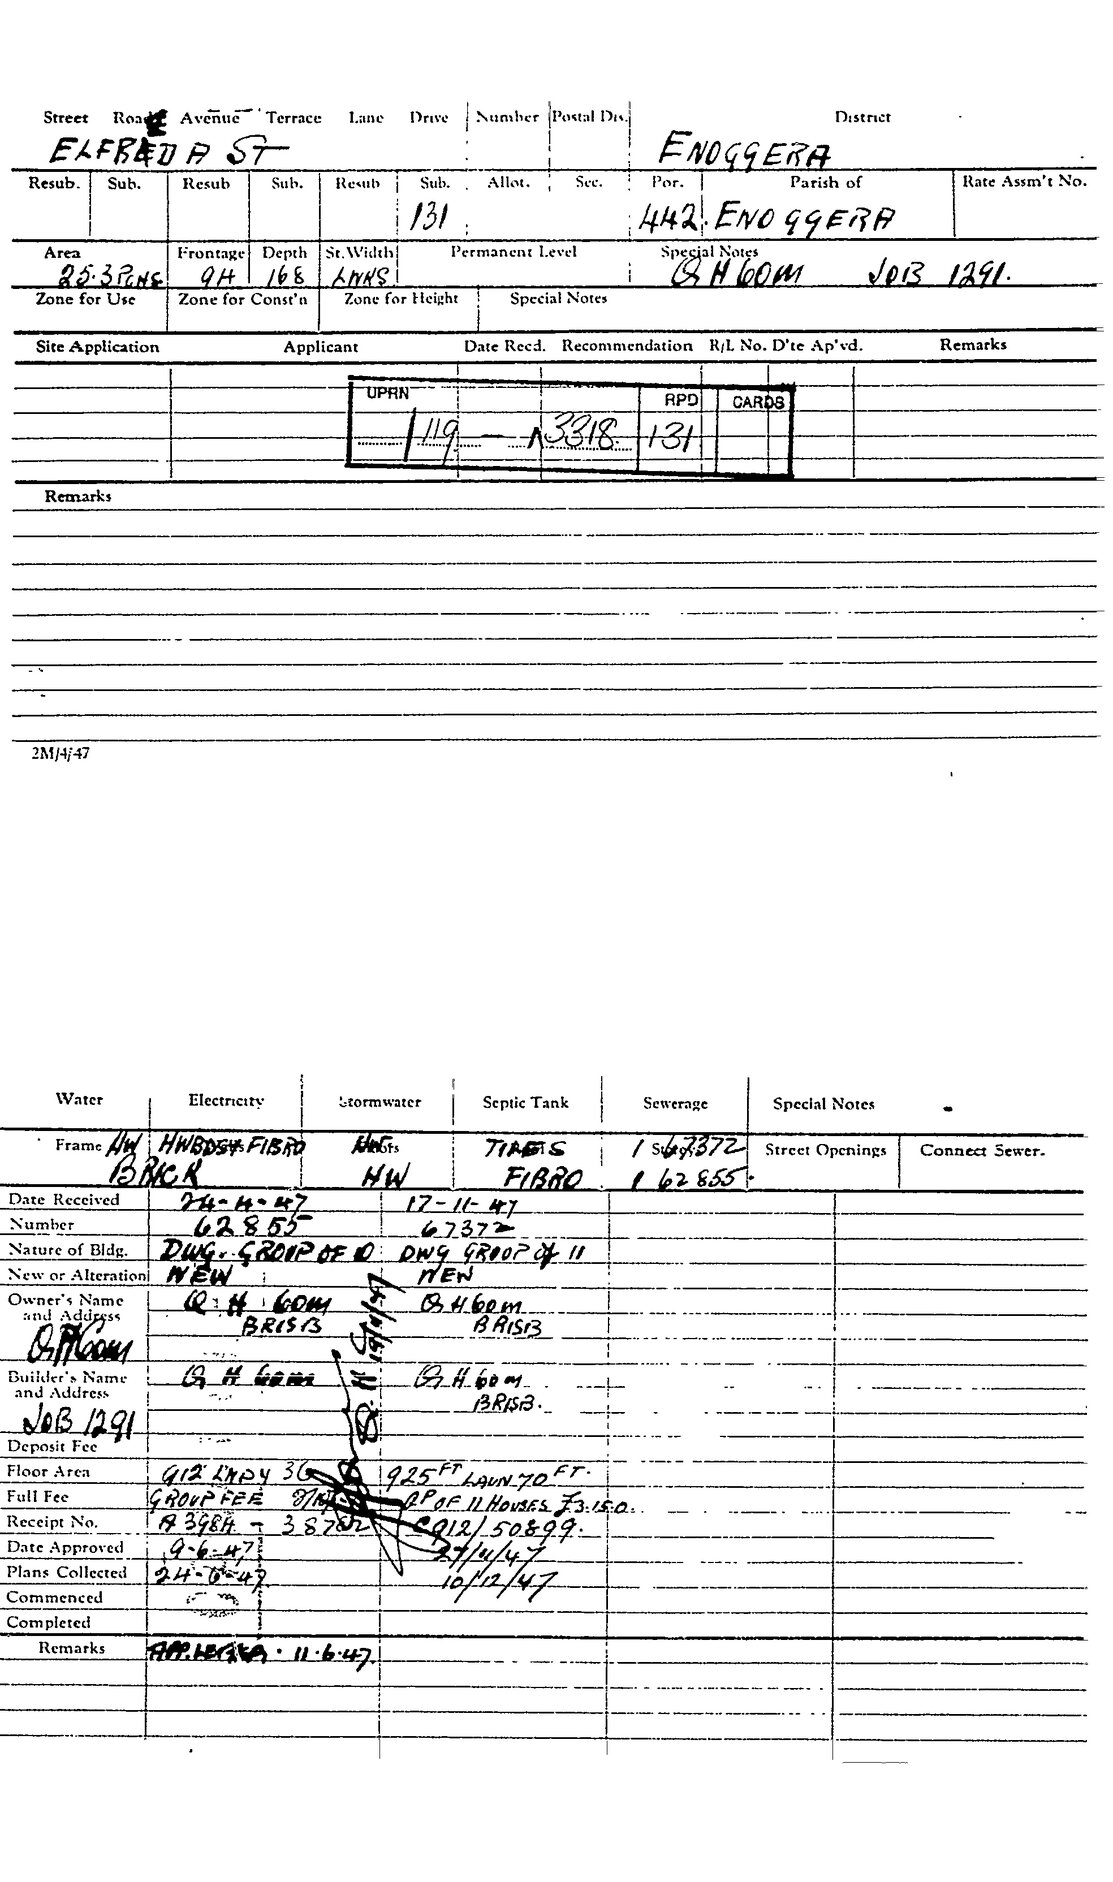 Street Road Avenue Terrace Lane Drive Number Postal Dis. District
ELFREDA ST ENOGGERA
Resub. Sub. Resub Sub. Resub Sub. Allot. Sec. Por. Parish of Rate Assm't No.
131 442. ENOGGERA
Area Frontage Depth St. Width Permanent Level Special Notes
25.3 PCHS 94 168 LNKS Q H COM JOB 1291.
Zone for Use Zone for Const'n Zone for Height Special Notes
Site Application Applicant Date Recd. Recommendation R/L No. D'te Ap'vd. Remarks
UPRN RPD CARDS
119 — 3318 131
Remarks
2M/4/47
Water Electricity Stormwater Septic Tank Sewerage Special Notes
Frame HW FIBRO 1 67372 Street Openings Connect Sewer.
BRICK HW FIBRO 1 62855.
Date Received 24-4-47 17-11-47
Number 62855 67372
Nature of Bldg. DWG. GROUP OF 10 DWG GROUP of 11
New or Alteration NEW NEW
Owner's Name Q H COM Q H COM
and Address BRISB BRISB
Q H COM
Builder's Name Q H COM Q H COM
and Address BRISB.
JOB 1291
Deposit Fee
Floor Area 912 LNDY 36 925 FT LAUN 70 FT.
Full Fee GROUP FEE GP OF 11 HOUSES £3.15.0.
Receipt No. A 3984 - 38782 C912/50899.
Date Approved 9-6-47 27/11/47
Plans Collected 24-6-47 10/12/47
Commenced
Completed
Remarks 11.6.47.